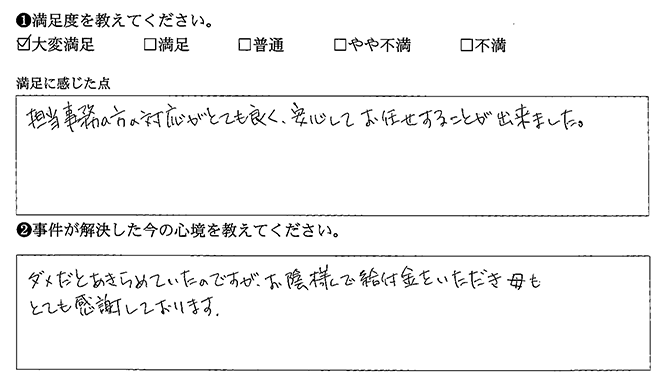 ❶満足度を教えてください。
☑大変満足 □満足 □普通 □やや不満 □不満
満足に感じた点
担当事務の方の対応がとても良く、安心してお任せすることが出来ました。
❷事件が解決した今の心境を教えてください。
ダメだとあきらめていたのですが、お陰様で給付金をいただき母も
とても感謝しております。